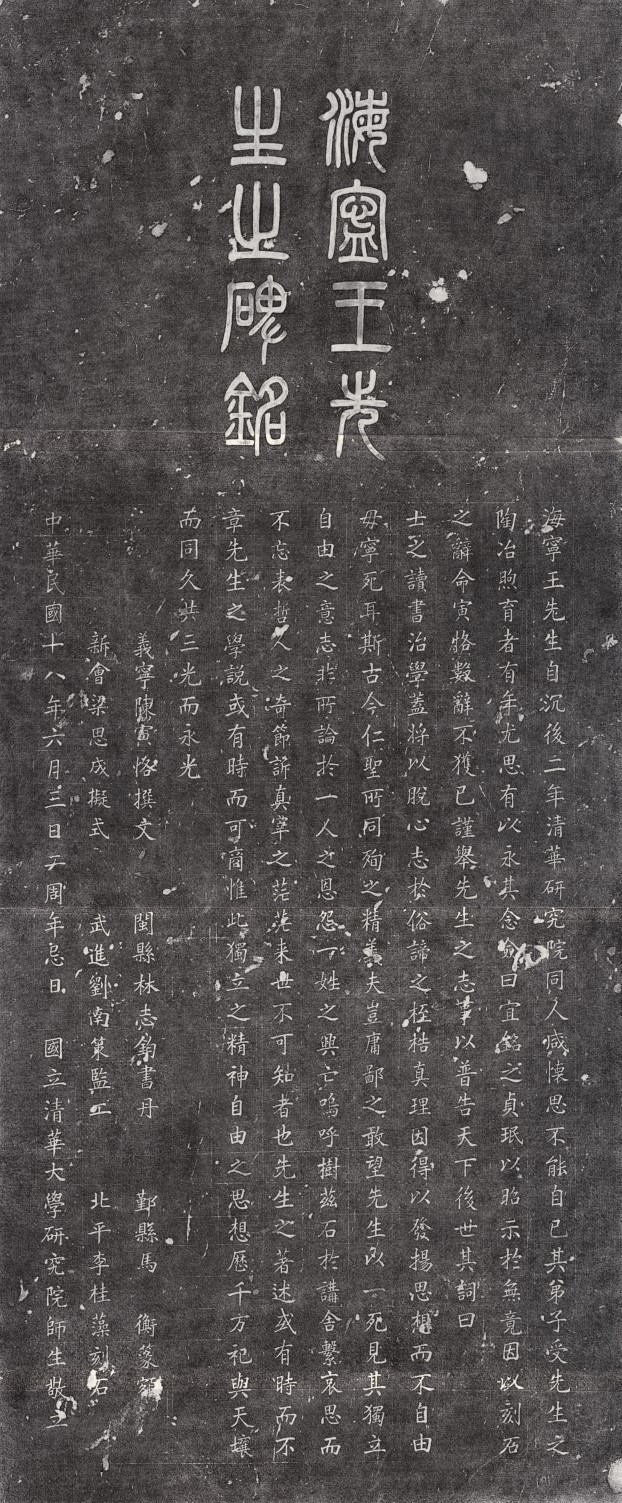 海寧王先
生之碑銘
海寧王先生自沉後二年清華研究院同人咸懷思不能自已其弟子受先生之
陶冶煦育者有年尤思有以永其念僉曰宜銘之貞珉以昭示於無竟因以刻石
之辭命寅恪數辭不獲已謹舉先生之志事以普告天下後世其詞曰
士之讀書治學蓋將以脫心志於俗諦之桎梏真理因得以發揚思想而不自由
毋寧死耳斯古今仁聖所同殉之精義夫豈庸鄙之敢望先生以一死見其獨立
自由之意志非所論於一人之恩怨一姓之興亡嗚呼樹茲石於講舍繫哀思而
不忘表哲人之奇節訴真宰之茫茫來世不可知者也先生之著述或有時而不
章先生之學說或有時而可商惟此獨立之精神自由之思想歷千万祀與天壤
而同久共三光而永光
義寧陳寅恪撰文 閩縣林志鈞書丹 鄞縣馬衡篆額
新會梁思成擬式 武進劉南策監工 北平李桂藻刻石
中華民國十八年六月三日二周年忌日 國立清華大學研究院師生敬立